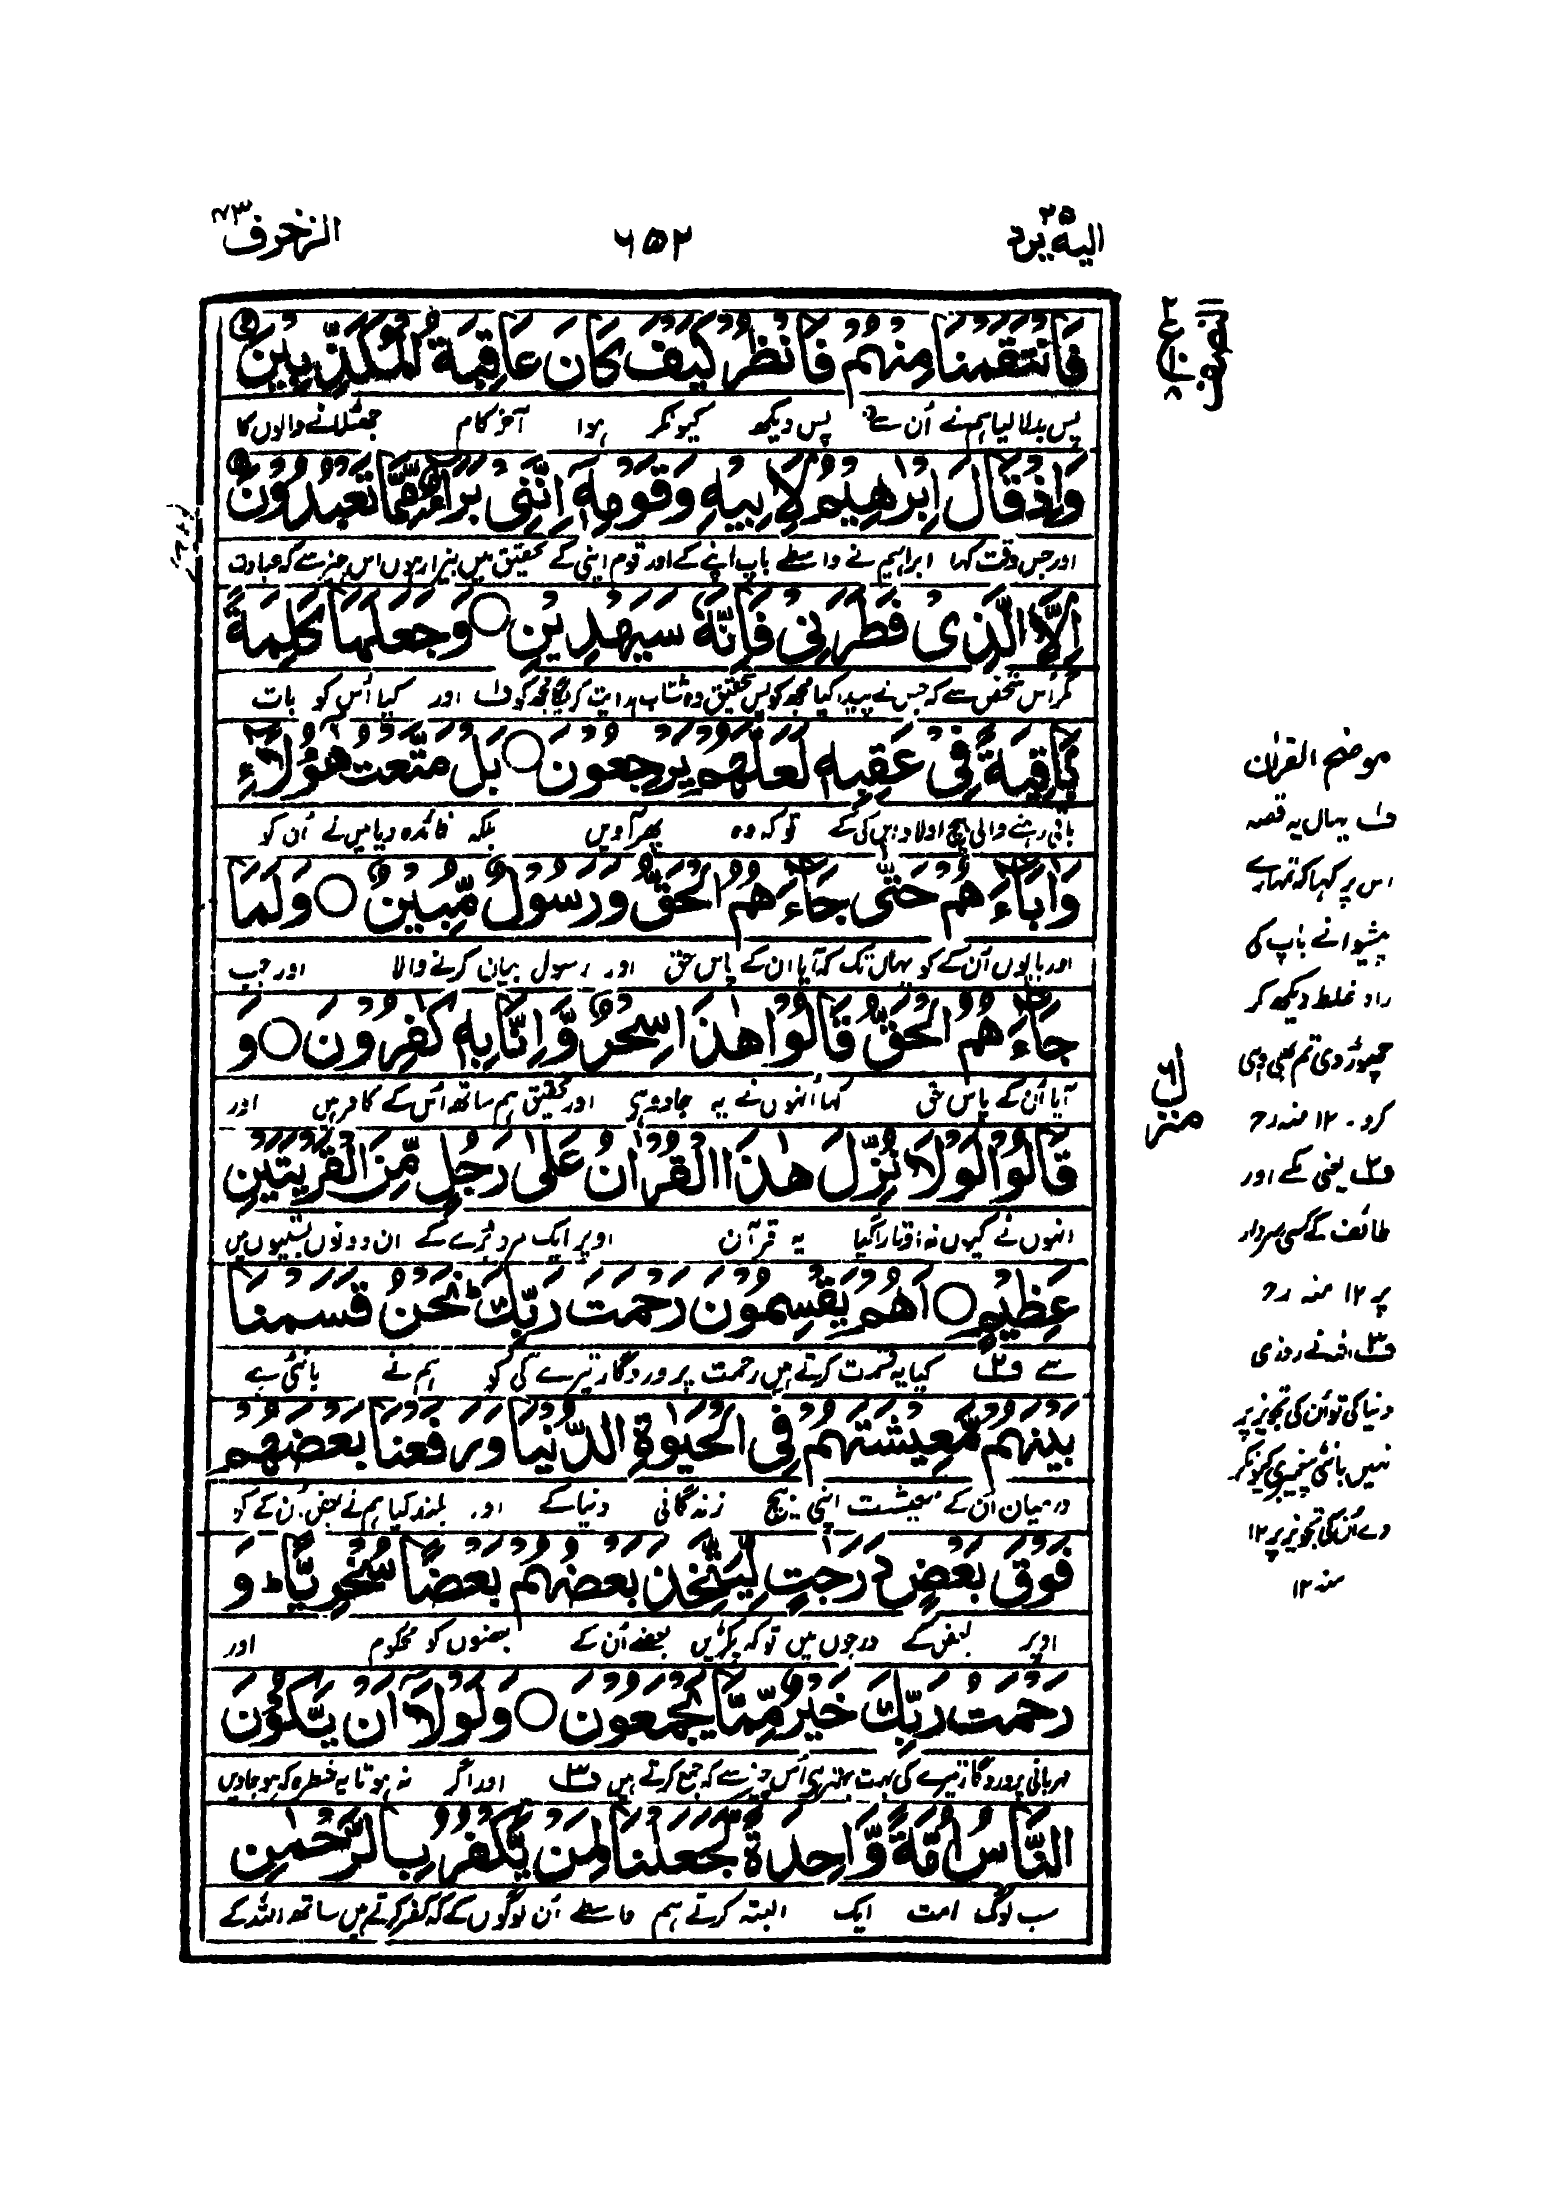 الیه یرد ۲۵
۶۵۲
الزخرف ۴۳
فَانْتَقَمْنَا مِنْهُمْ فَانْظُرْ كَيْفَ كَانَ عَاقِبَةُ الْمُكَذِّبِيْنَ
پس بدلا لیا ہم نے اُن سے پس دیکھ کیونکر ہوا آخر کام جھٹلانے والوں کا
وَاِذْ قَالَ اِبْرٰهِيْمُ لِاَبِيْهِ وَقَوْمِهٖۤ اِنَّنِيْ بَرَآءٌ مِّمَّا تَعْبُدُوْنَ
اور جس وقت کہا ابراہیم نے واسطے باپ اپنے کے اور قوم اپنی کے تحقیق میں بیزار ہوں اس چیز سے کہ عبادت
اِلَّا الَّذِيْ فَطَرَنِيْ فَاِنَّهٗ سَيَهْدِيْنِ ○ وَجَعَلَهَا كَلِمَةً
مگر اُس شخص سے کہ جس نے پیدا کیا مجھ کو پس تحقیق وہ شتاب ہدایت کریگا مجھ کو ف۱ اور کیا اُس کو بات
بَاقِيَةً فِيْ عَقِبِهٖ لَعَلَّهُمْ يَرْجِعُوْنَ ○ بَلْ مَتَّعْتُ هٰۤؤُلَآءِ
باقی رہنے والی بیچ اولاد اس کی کے تو کہ وہ پھر آویں بلکہ فائدہ دیا میں نے اُن کو
وَاٰبَآءَهُمْ حَتّٰى جَآءَهُمُ الْحَقُّ وَرَسُوْلٌ مُّبِيْنٌ ○ وَلَمَّا
اور باپوں اُن کے کو یہاں تک کہ آیا ان کے پاس حق اور رسول بیان کرنے والا اور جب
جَآءَهُمُ الْحَقُّ قَالُوْا هٰذَا سِحْرٌ وَّاِنَّا بِهٖ كٰفِرُوْنَ ○ وَ
آیا اُن کے پاس حق کہا اُنہوں نے یہ جادو ہے اور تحقیق ہم ساتھ اُس کے کافر ہیں اور
قَالُوْا لَوْلَا نُزِّلَ هٰذَا الْقُرْاٰنُ عَلٰى رَجُلٍ مِّنَ الْقَرْيَتَيْنِ
انہوں نے کیوں نہ اوتارا گیا یہ قرآن اوپر ایک مرد بڑے کے ان دونوں بستیوں میں
عَظِيْمٍ ○ اَهُمْ يَقْسِمُوْنَ رَحْمَتَ رَبِّكَ ؕ نَحْنُ قَسَمْنَا
سے ف۲ کیا یہ قسمت کرتے ہیں رحمت پروردگار تیرے کی کو ہم نے بانٹی ہے
بَيْنَهُمْ مَّعِيْشَتَهُمْ فِي الْحَيٰوةِ الدُّنْيَا وَرَفَعْنَا بَعْضَهُمْ
درمیان اُن کے معیشت اپنی بیچ زندگانی دنیا کے اور بلند کیا ہم نے بعض اُن کے کو
فَوْقَ بَعْضٍ دَرَجٰتٍ لِّيَتَّخِذَ بَعْضُهُمْ بَعْضًا سُخْرِيًّا ؕ وَ
اوپر بعض کے درجوں میں تو کہ پکڑیں بعضے اُن کے بعضوں کو محکوم اور
رَحْمَتُ رَبِّكَ خَيْرٌ مِّمَّا يَجْمَعُوْنَ ○ وَلَوْلَاۤ اَنْ يَّكُوْنَ
مہربانی پروردگار تیرے کی بہت بہتر ہے اُس چیز سے کہ جمع کرتے ہیں ف۳ اور اگر نہ ہوتا یہ خطرہ کہ ہو جاویں
النَّاسُ اُمَّةً وَّاحِدَةً لَّجَعَلْنَا لِمَنْ يَّكْفُرُ بِالرَّحْمٰنِ
سب لوگ امت ایک البتہ کرتے ہم واسطے اُن لوگوں کے کہ کفر کرتے ہیں ساتھ اللہ کے
موضح القرآن
ف۱ یہاں یہ قصہ
اس پر کہا کہ تمہارے
پیشوا نے باپ کی
راہ غلط دیکھ کر
چھوڑ دی تم بھی وہی
کرو۔ ۱۲ منہ رح
ف۲ یعنی مکے اور
طائف کے کسی سردار
پر ۱۲ منہ رح
ف۳ اللہ نے روزی
دنیا کی تو اُن کی تجویز پر
نہیں بانٹی پیغمبری کیونکر
دے اُن کی تجویز پر ۱۲
منہ ۱۲
منزل ۶